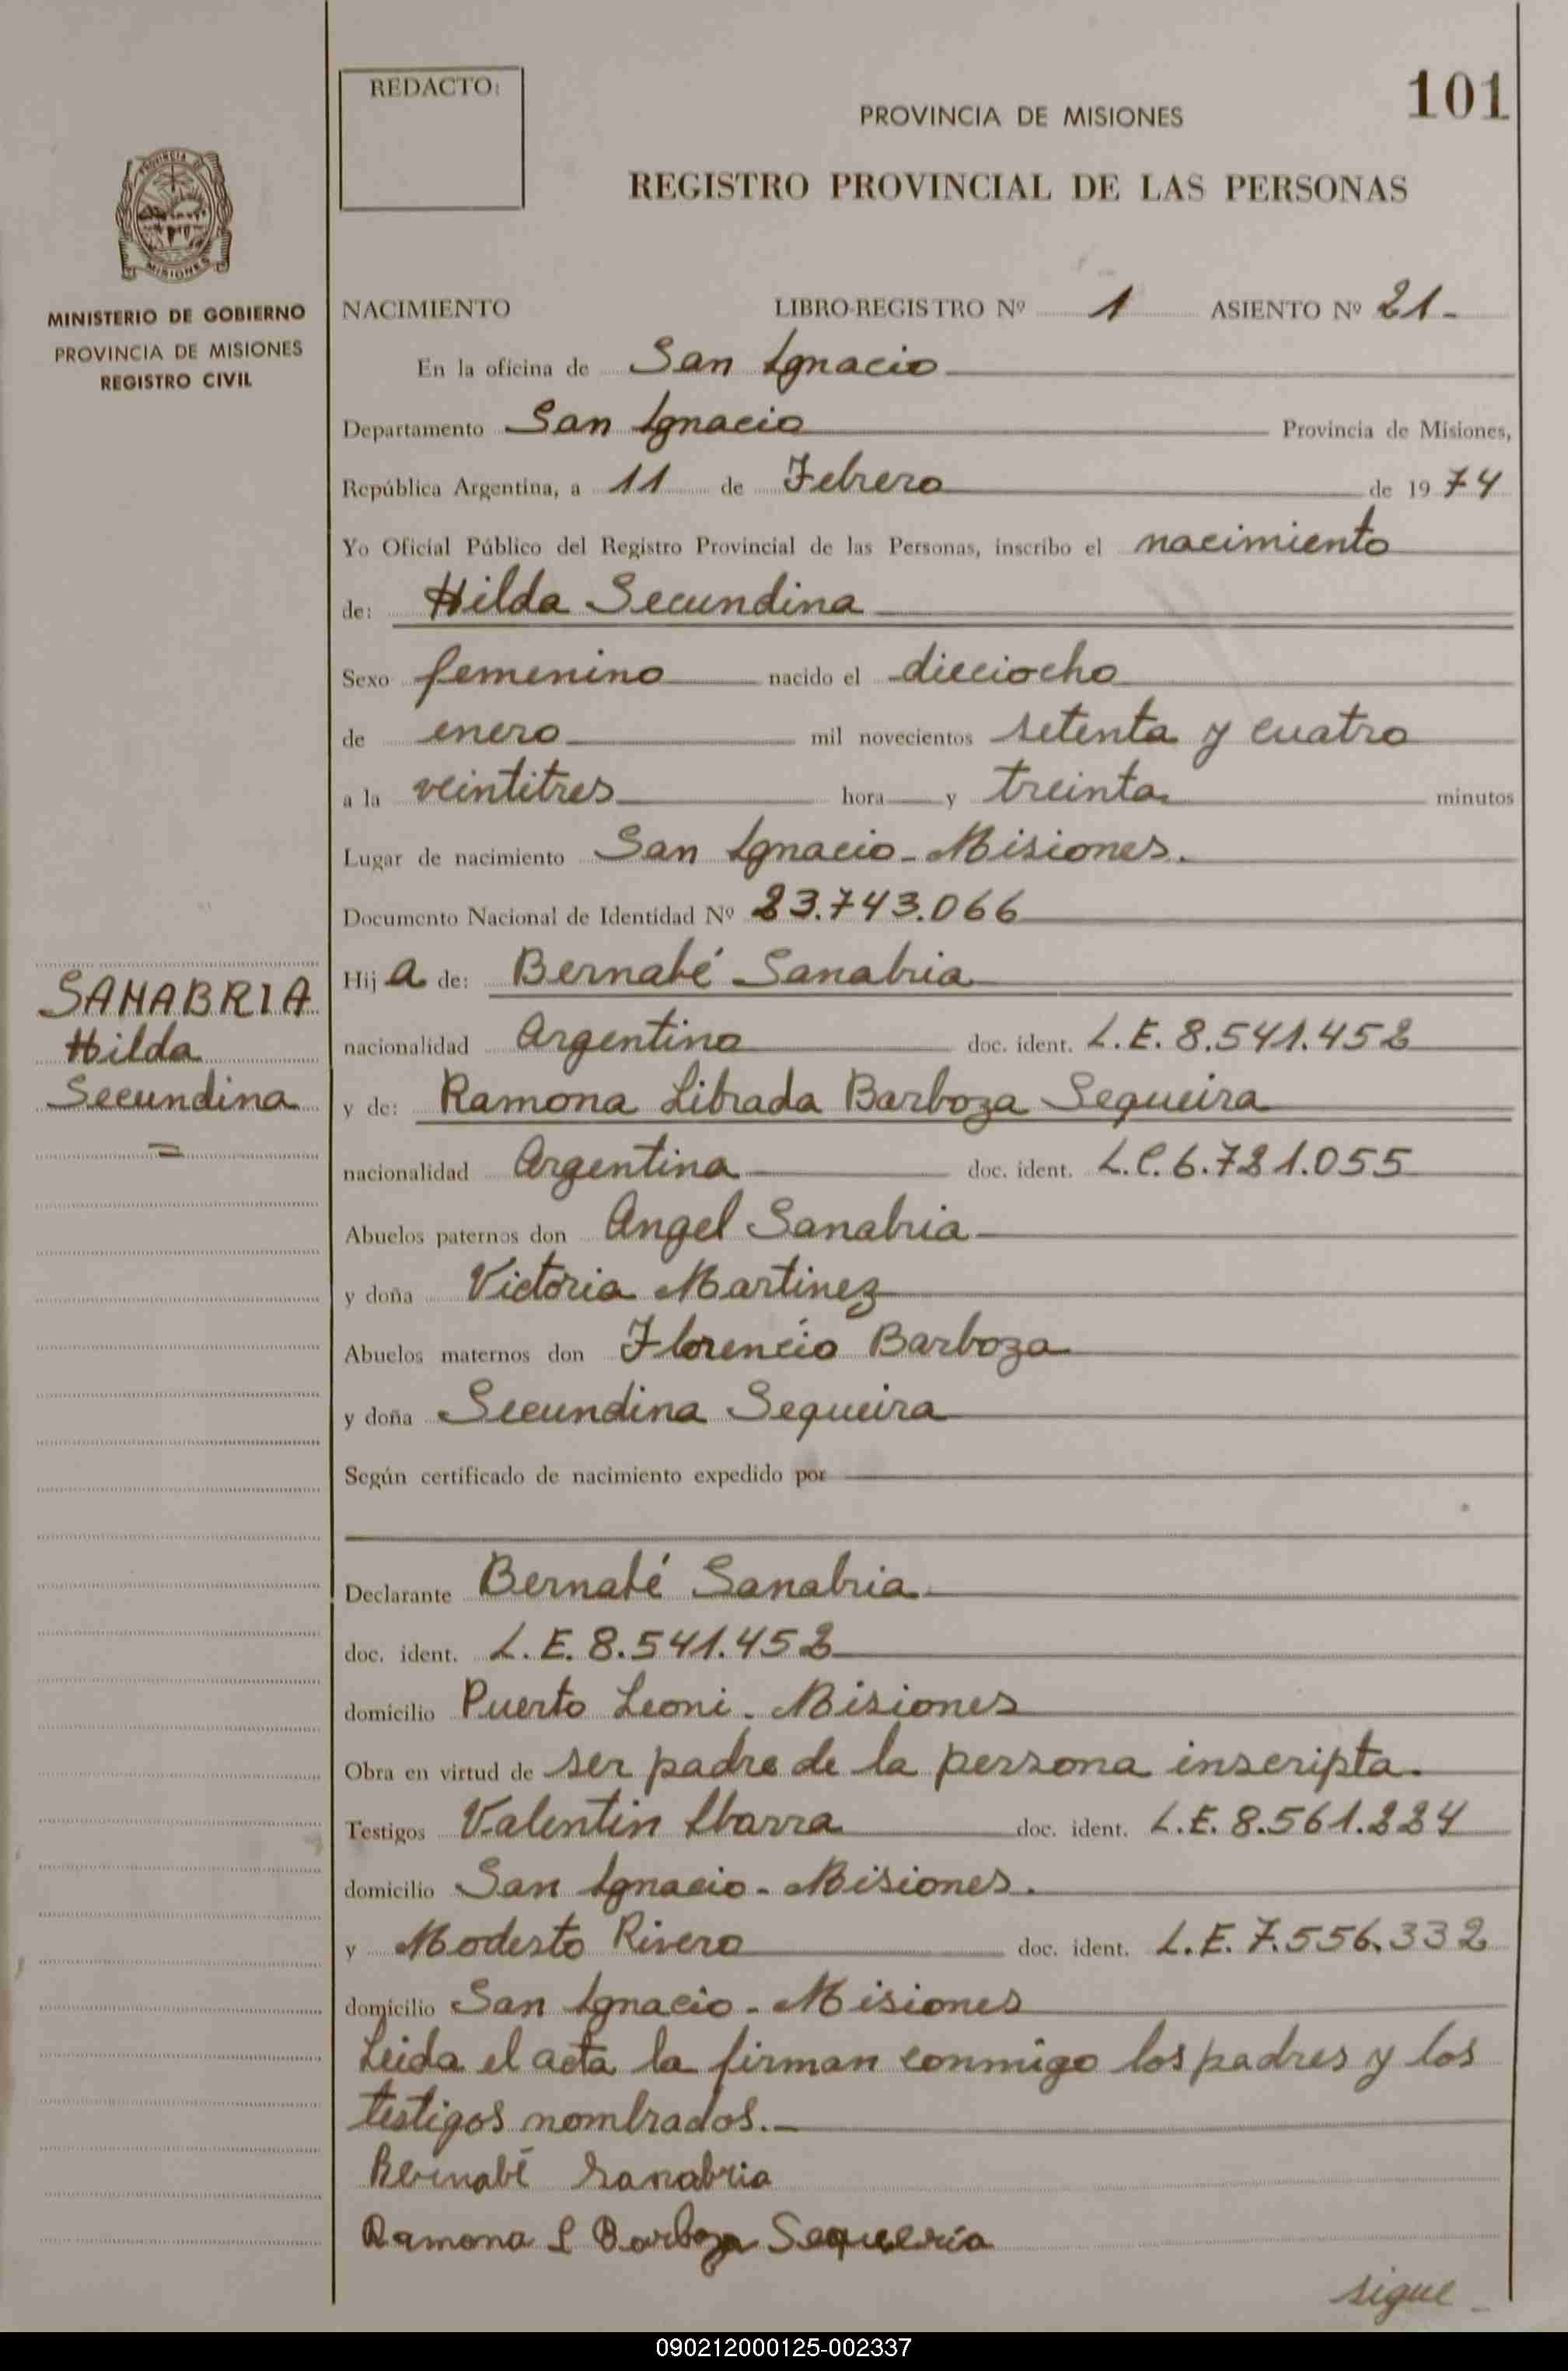 REDACTO:
101
PROVINCIA DE MISIONES
REGISTRO PROVINCIAL DE LAS PERSONAS
PROVINCIA DE
MISIONES
MINISTERIO DE GOBIERNO
PROVINCIA DE MISIONES
REGISTRO CIVIL
NACIMIENTO LIBRO-REGISTRO Nº 1 ASIENTO Nº 21-
En la oficina de San Ignacio
Departamento San Ignacio Provincia de Misiones,
República Argentina, a 11 de Febrero de 1974
Yo Oficial Público del Registro Provincial de las Personas, inscribo el nacimiento
de: Hilda Secundina
Sexo femenino nacido el dieciocho
de enero mil novecientos setenta y cuatro
a la veintitres hora y treinta minutos
Lugar de nacimiento San Ignacio - Misiones.
Documento Nacional de Identidad Nº 23.743.066
SANABRIA
Hilda
Secundina
=
Hija de: Bernabé Sanabria
nacionalidad Argentino doc. ident. L.E. 8.541.452
y de: Ramona Librada Barboza Sequeira
nacionalidad Argentina doc. ident. L.C. 6.721.055
Abuelos paternos don Angel Sanabria
y doña Victoria Martinez
Abuelos maternos don Florencio Barboza
y doña Secundina Sequeira
Según certificado de nacimiento expedido por
Declarante Bernabé Sanabria
doc. ident. L.E. 8.541.452
domicilio Puerto Leoni - Misiones
Obra en virtud de ser padre de la persona inscripta.
Testigos Valentin Ibarra doc. ident. L.E. 8.561.224
domicilio San Ignacio - Misiones.
y Modesto Rivero doc. ident. L.E. 7.556.332
domicilio San Ignacio - Misiones
Leida el acta la firman conmigo los padres y los
testigos nombrados.-
Bernabé Sanabria
Ramona L Barboza Sequeria
sigue -
090212000125-002337